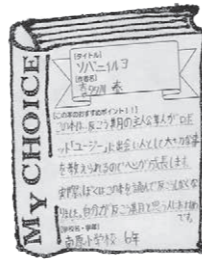 MY CHOICE
[タイトル]
ソバニイルヨ
[著者名]
喜多川 泰
[この本のおすすめポイント!!]
この本は、反こう期の主人公隼人がロボ
ット「ユージ」に出会い人として大切な事
を教えられるのでヘンが成長します
実際、ぼくはこの本を読んで反こうしなく
自分が反こう期と思う人におすすめ
です。
[学校名・学年]
小学校 6年